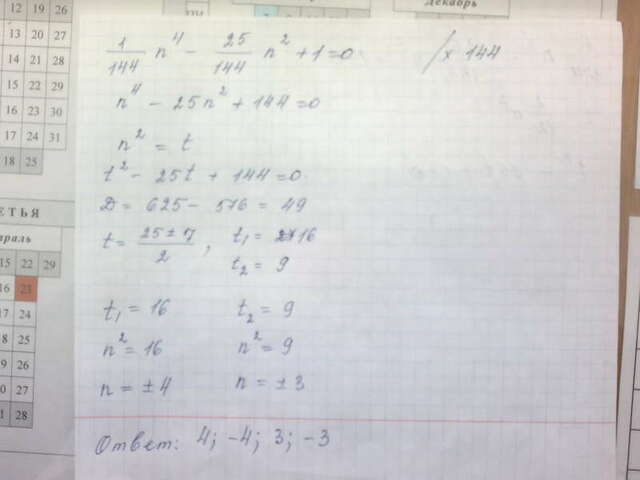 12 19 26
13 20 27
14 21 28
15 22 29
16 23 30
17 24 31
18 25
Декабрь
ЕТЬЯ
враль
15 22 29
16 23
17 24
18 25
19 26
20 27
21 28
1/144 n⁴ - 25/144 n² + 1 = 0 /× 144
n⁴ - 25n² + 144 = 0
n² = t
t² - 25t + 144 = 0
D = 625 - 576 = 49
t = (25 ± 7)/2 , t₁ = 16
t₂ = 9
t₁ = 16 t₂ = 9
n² = 16 n² = 9
n = ± 4 n = ± 3
Ответ: 4; -4; 3; -3